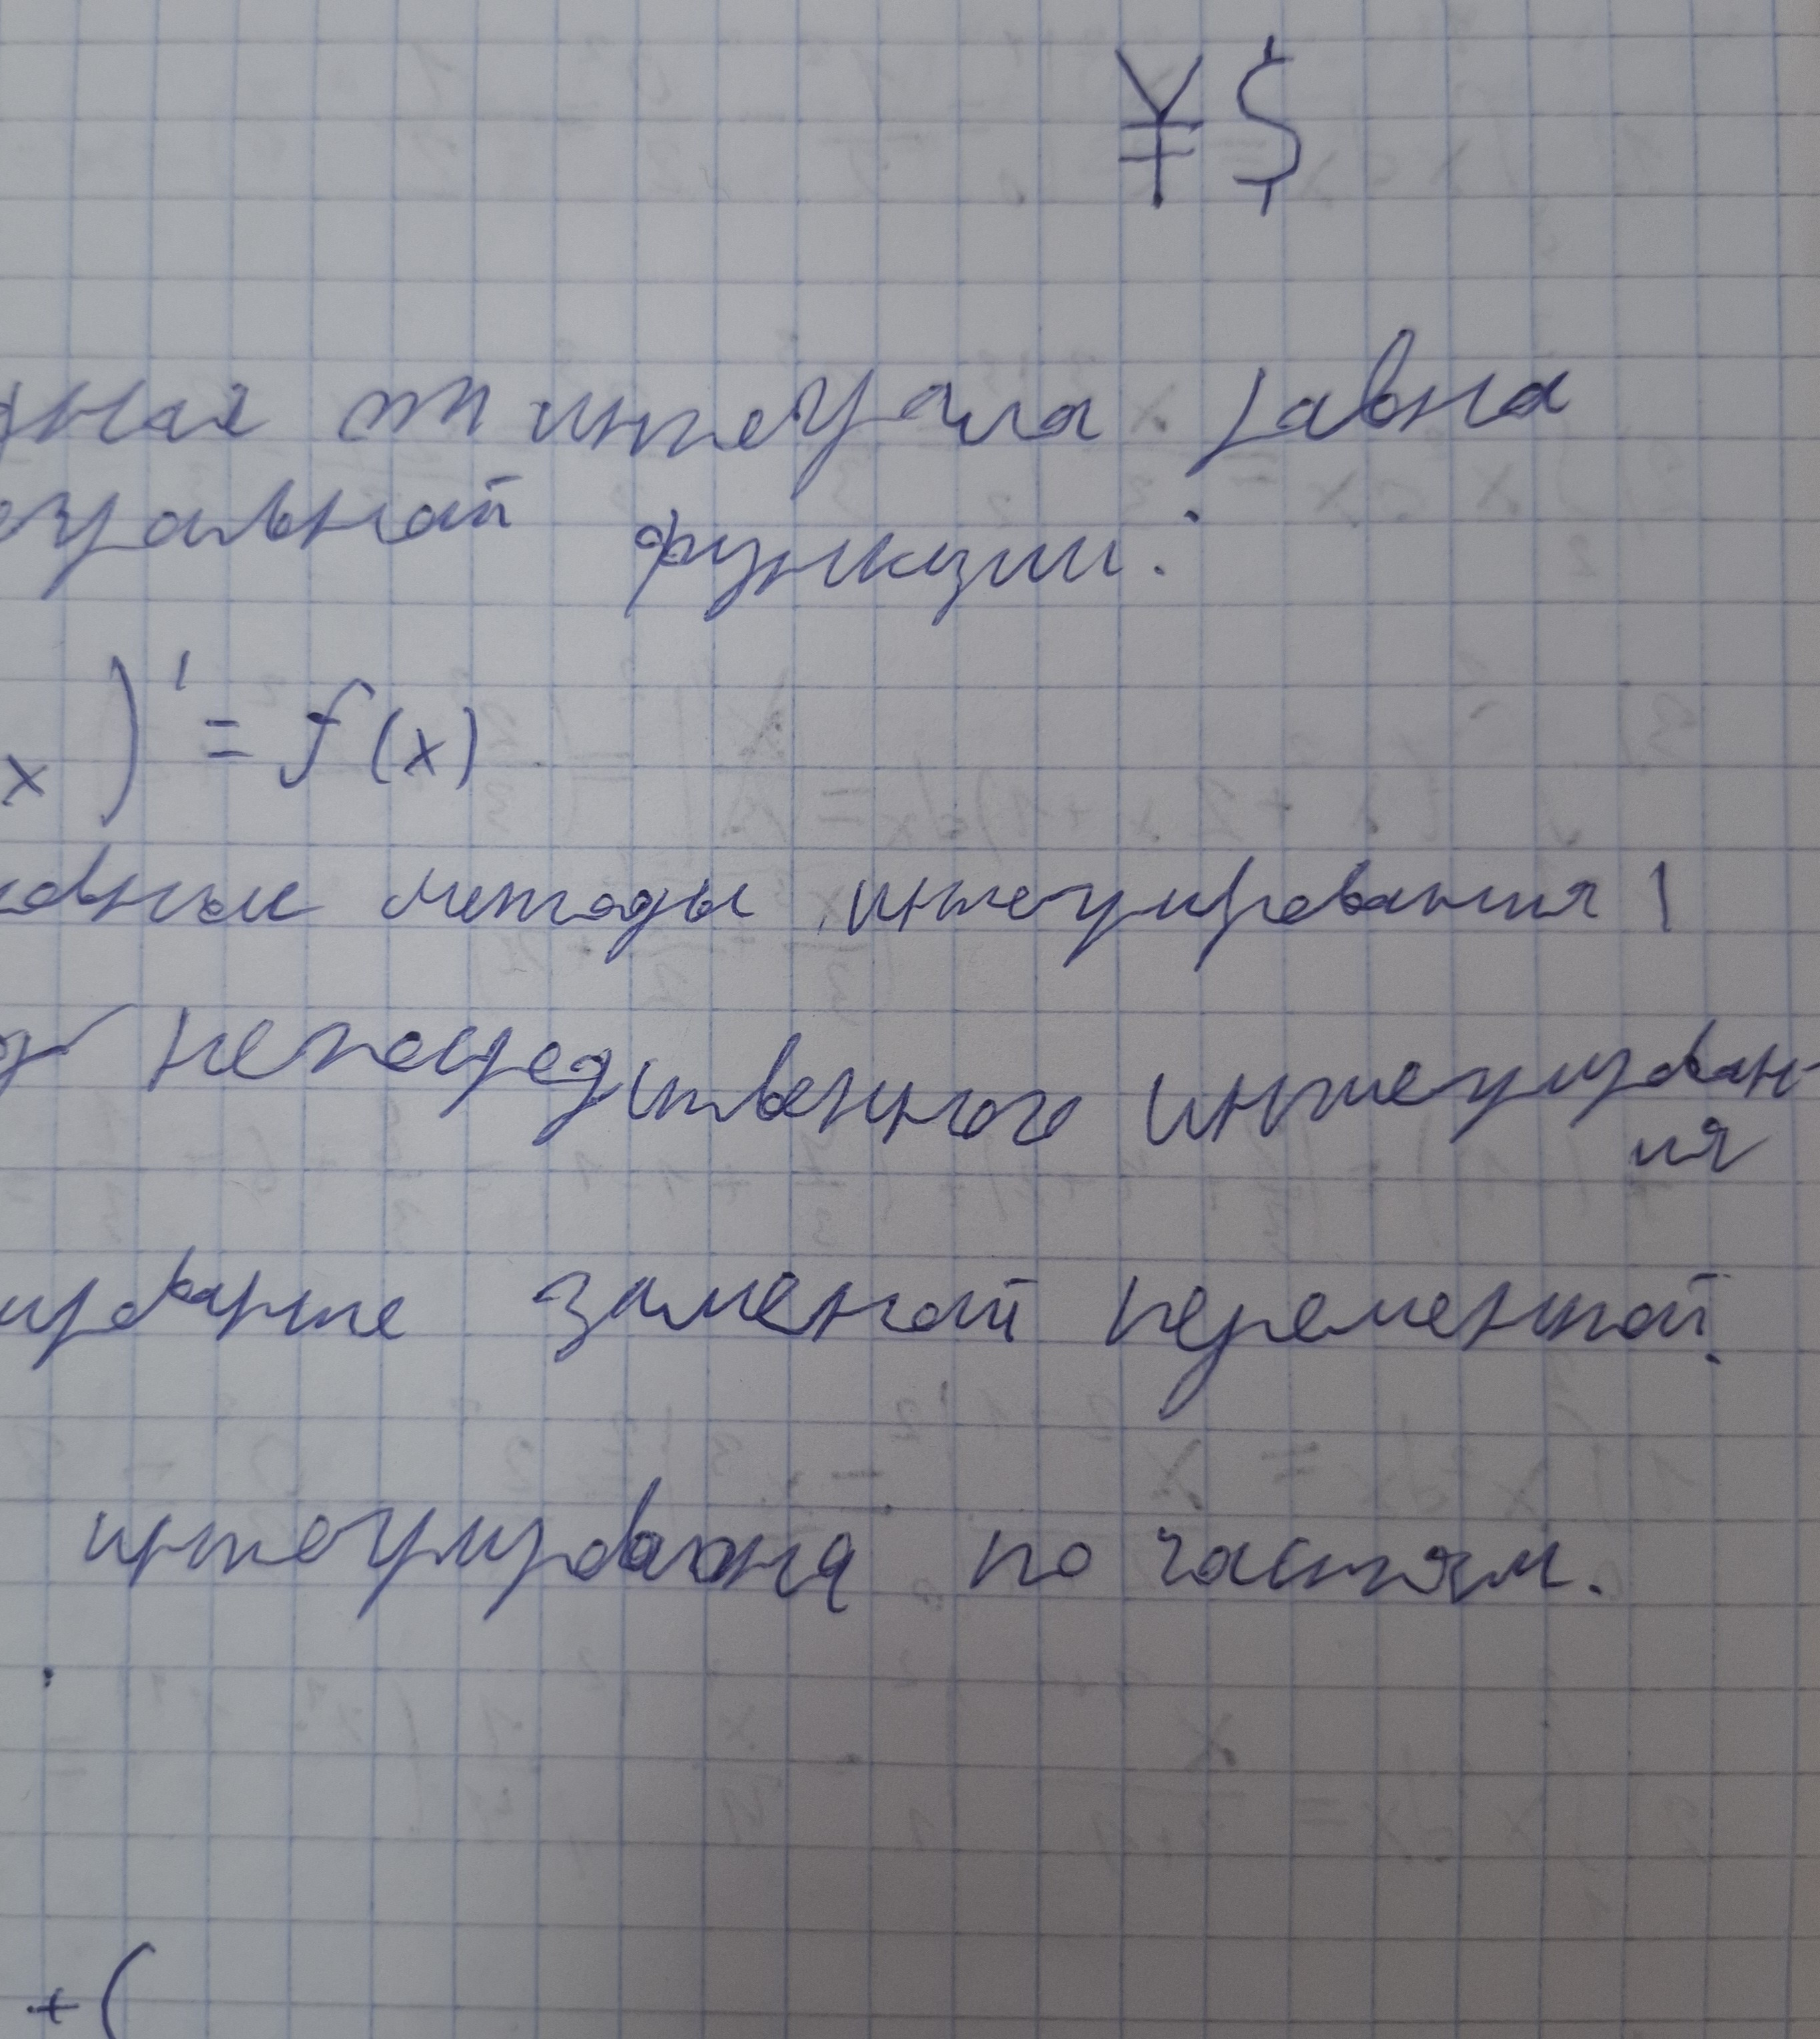 ¥$
дная от интеграла равна
егральной функции:
x)' = f(x)
новные методы интегрирования!
д непосредственного интегрирован-
ия
ирование заменой переменной.
интегрирования по частям.
+(